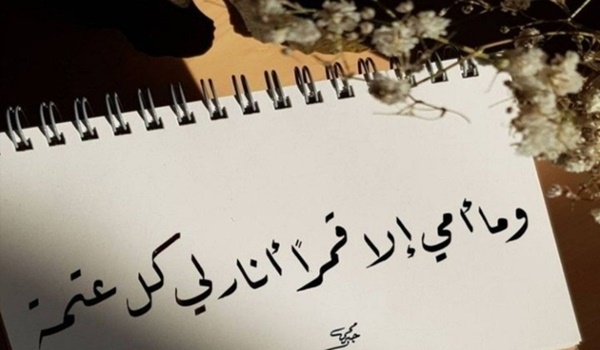 وما أمي إلا قمراً أنار لي كل عتمة